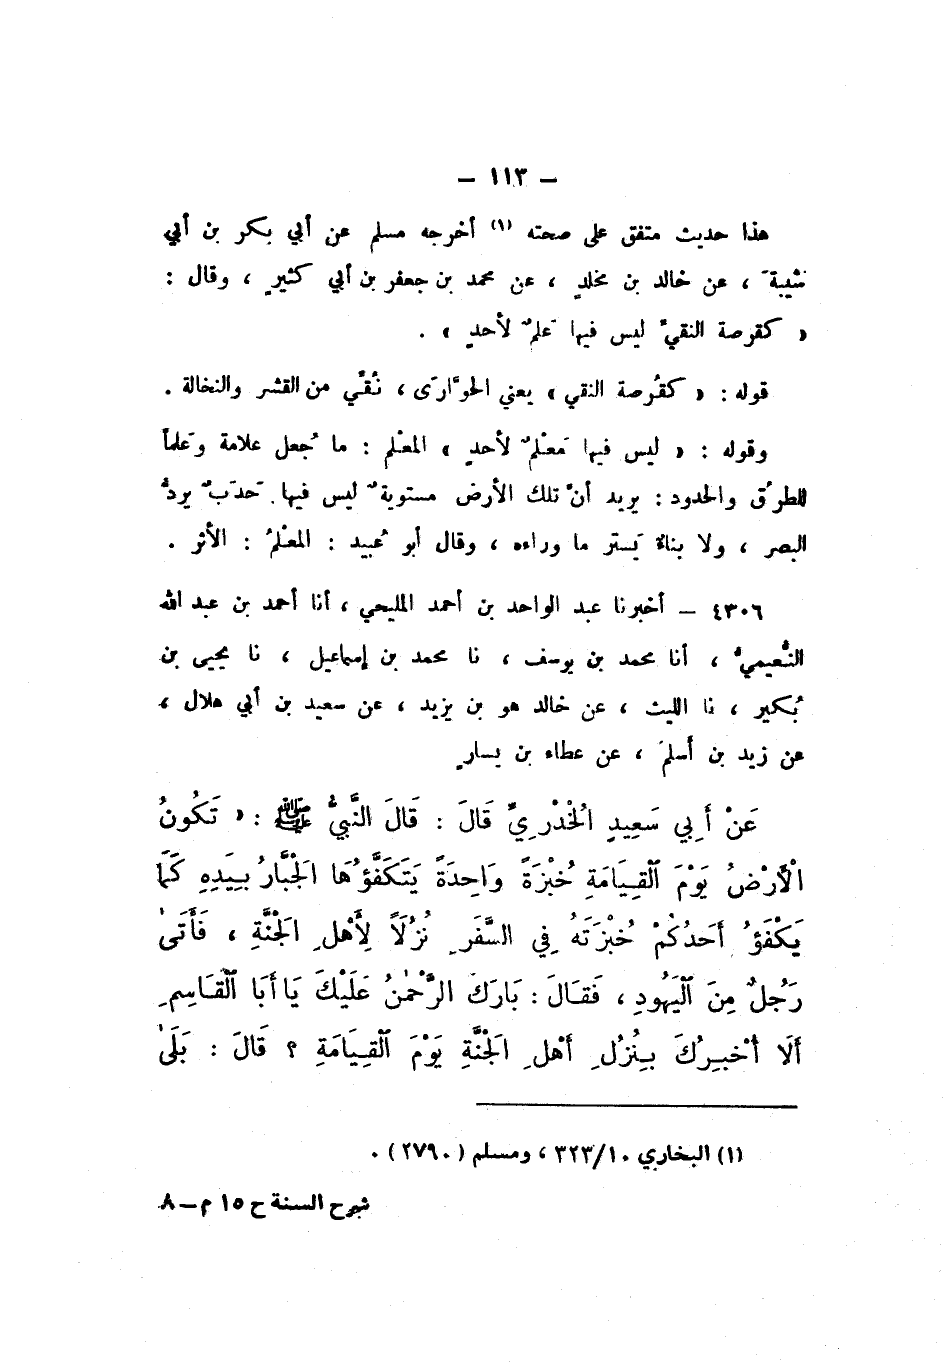 – ١١٣ –
هذا حديث متفق على صحته (١) أخرجه مسلم عن أبي بكر بن أبي
شيبةَ ، عن خالد بن مخلدٍ ، عن محمد بن جعفر بن أبي كثيرٍ ، وقال :
« كقرصة النقيِّ ليس فيها عَلمٌ لأحدٍ » .
قوله : « كقُرصة النقي » يعني الحوَّارَى ، نُقِّي من القشر والنخالة .
وقوله : « ليس فيها مَعلْمٌ لأحدٍ » المعلْم : ما جُعل علامة وعَلماً
للطرُق والحدود : يريد أنَّ تلك الأرض مستويةٌ ليس فيها حَدَبٌ يردُّ
البصر ، ولا بناءٌ يَستر ما وراءه ، وقال أبو عُبيد : المعْلمُ : الأثر .
٤٣٠٦ – أخبرنا عبد الواحد بن أحمد المليحي ، أنا أحمد بن عبد الله
النُّعيميُّ ، أنا محمد بن يوسف ، نا محمد بن إسماعيل ، نا يحيى بن
بُكير ، نا الليث ، عن خالد هو بن يزيد ، عن سعيد بن أبي هلال ،
عن زيد بن أَسلمَ ، عن عطاء بن يسارٍ
عَنْ أَبِي سَعِيدٍ الْخُدْرِيِّ قَالَ : قَالَ النَّبِيُّ ﷺ : « تَكُونُ
الْأَرْضُ يَوْمَ الْقِيَامَةِ خُبْزَةً وَاحِدَةً يَتَكَفَّؤُهَا الْجَبَّارُ بِيَدِهِ كَمَا
يَكْفَؤُ أَحَدُكُمْ خُبْزَتَهُ فِي السَّفَرِ نُزُلاً لِأَهْلِ الْجَنَّةِ ، فَأَتَى
رَجُلٌ مِنَ الْيَهُودِ ، فَقَالَ : بَارَكَ الرَّحْمٰنُ عَلَيْكَ يَا أَبَا الْقَاسِمِ
أَلَا أُخْبِرُكَ بِنُزُلِ أَهْلِ الْجَنَّةِ يَوْمَ الْقِيَامَةِ ؟ قَالَ : بَلَى
(١) البخاري ٣٢٣/١٠ ، ومسلم ( ٢٧٩٠ ) .
شرح السنة ج ١٥ م – ٨